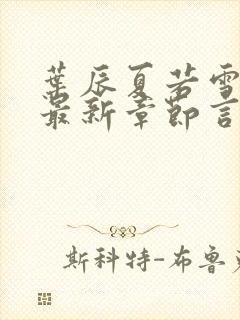 葉辰夏若雪
最新章節言
斯科特-布魯